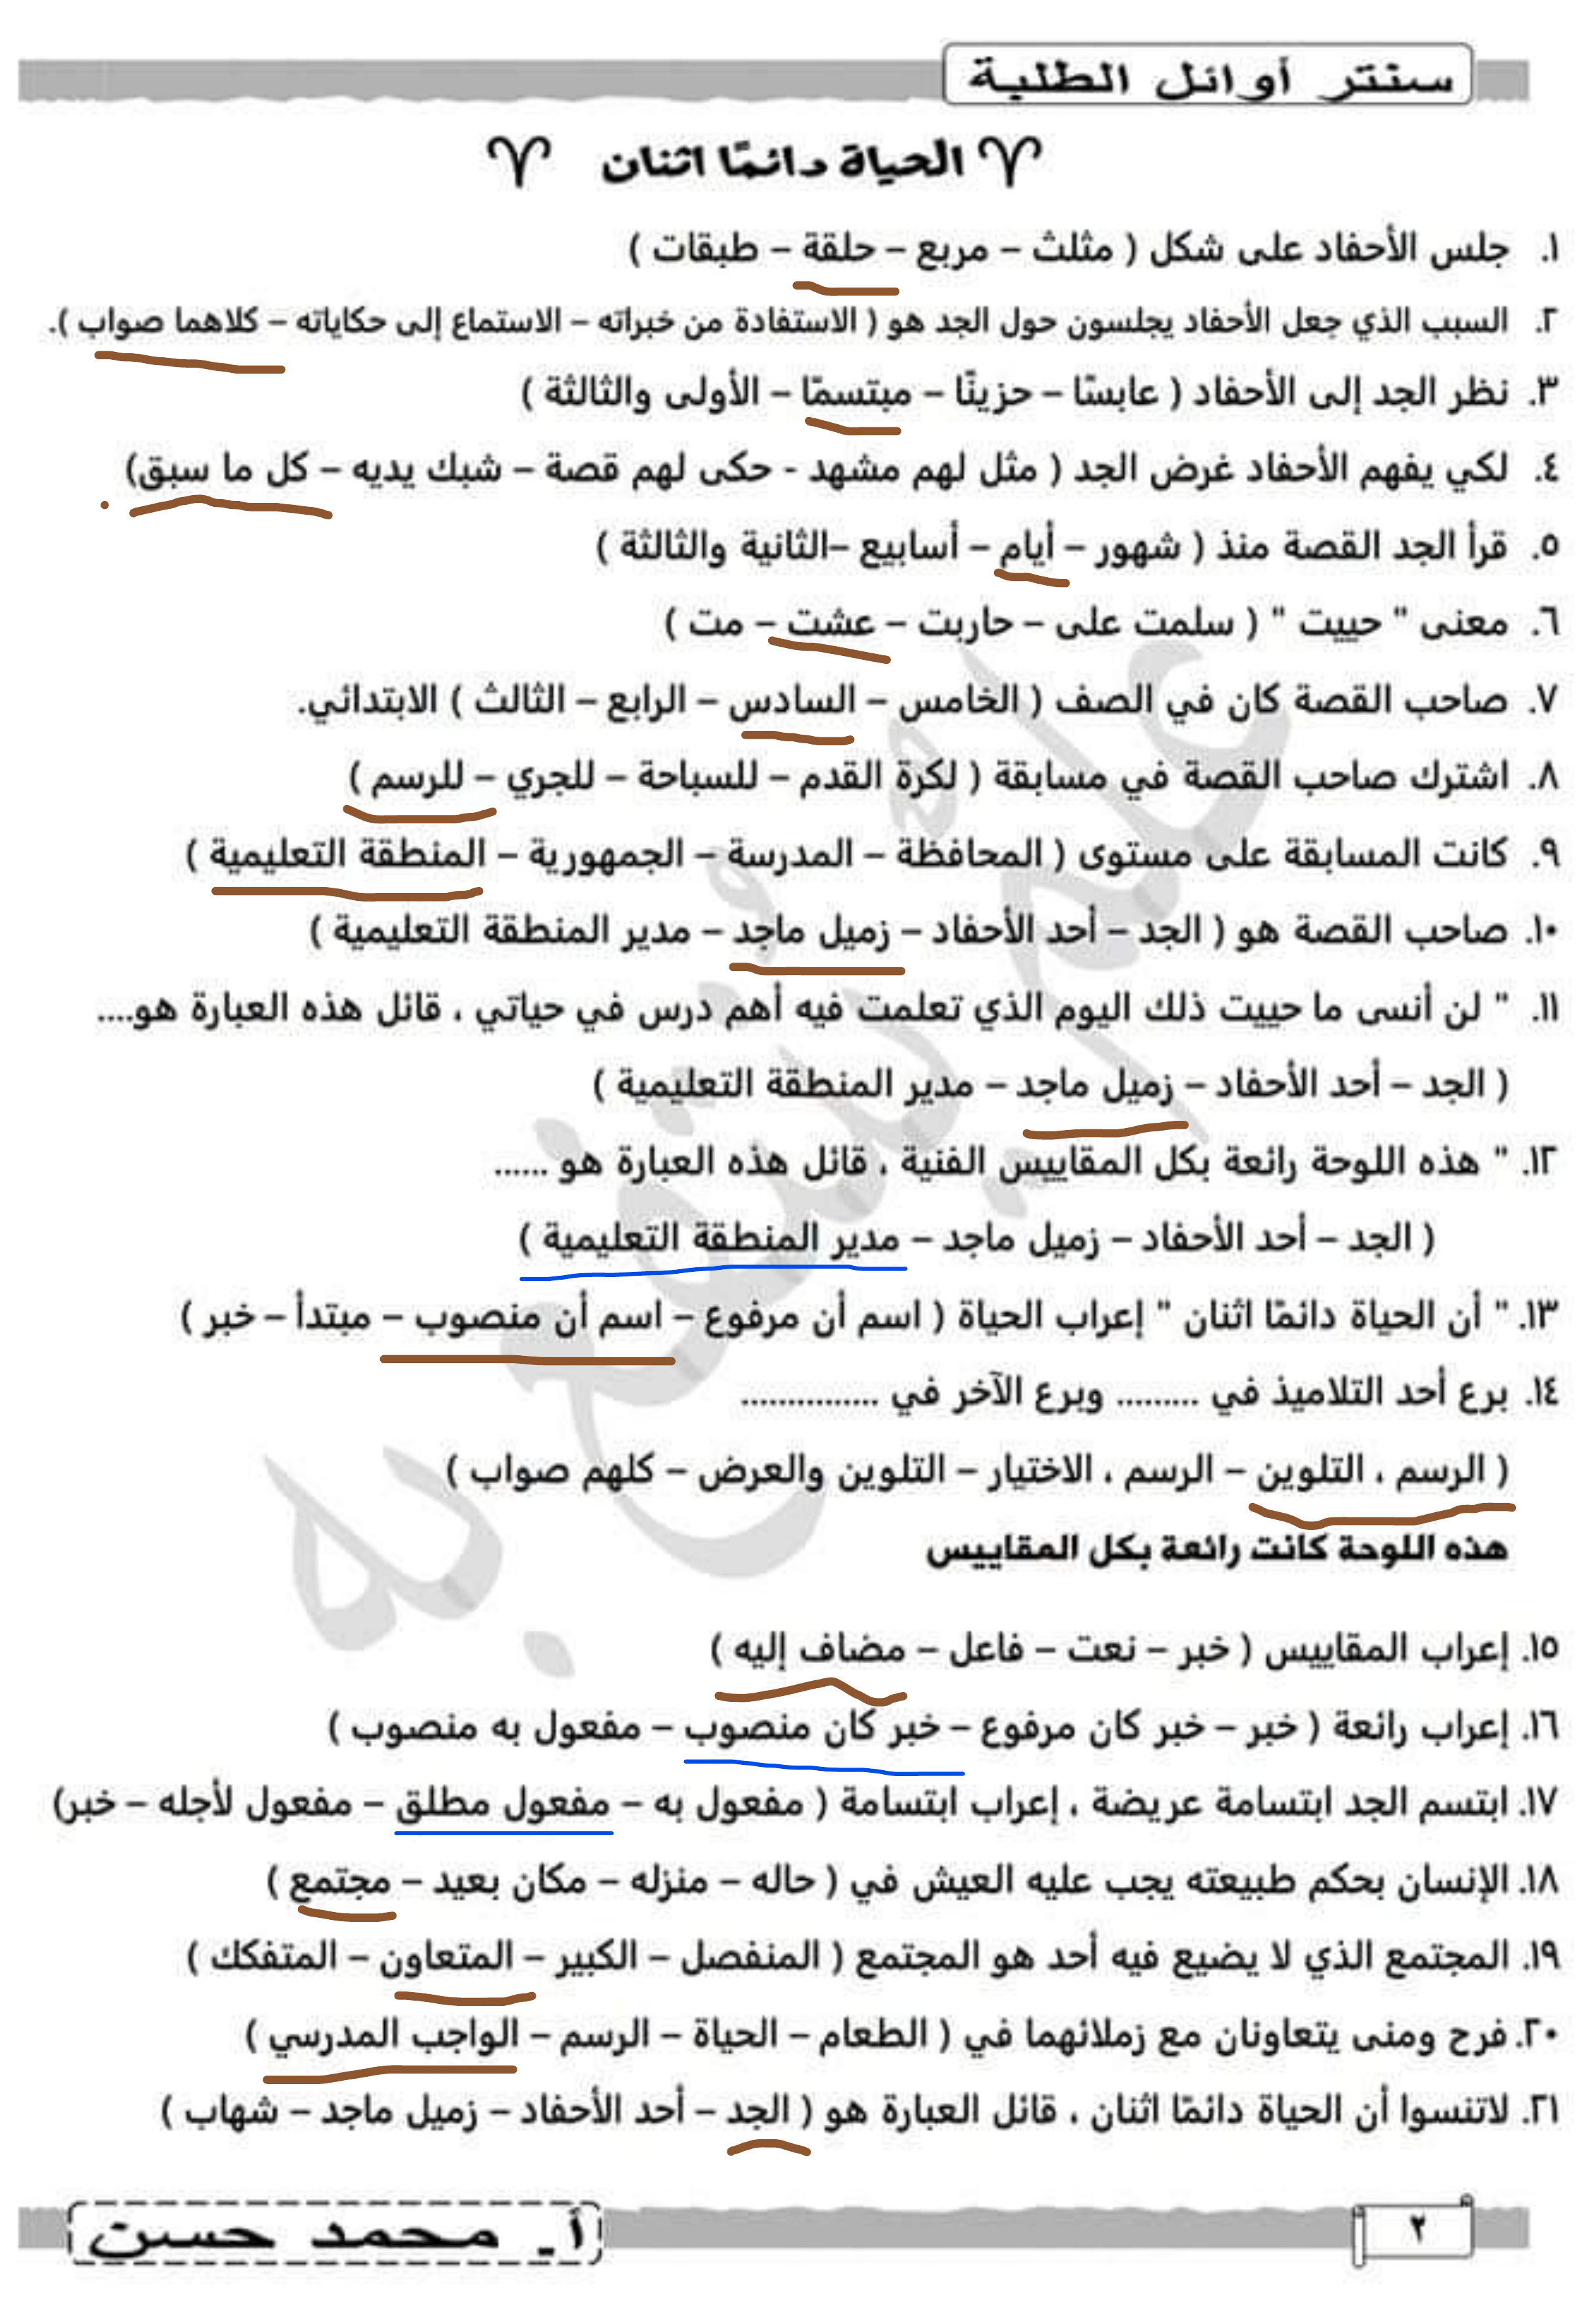 سنتر أوائل الطلبة
الحياة دائمًا اثنان
١. جلس الأحفاد على شكل ( مثلث – مربع – حلقة – طبقات )
٢. السبب الذي جعل الأحفاد يجلسون حول الجد هو ( الاستفادة من خبراته – الاستماع إلى حكاياته – كلاهما صواب ).
٣. نظر الجد إلى الأحفاد ( عابسًا – حزينًا – مبتسمًا – الأولى والثالثة )
٤. لكي يفهم الأحفاد غرض الجد ( مثل لهم مشهد - حكى لهم قصة – شبك يديه – كل ما سبق)
٥. قرأ الجد القصة منذ ( شهور – أيام – أسابيع –الثانية والثالثة )
٦. معنى " حييت " ( سلمت على – حاربت – عشت – مت )
٧. صاحب القصة كان في الصف ( الخامس – السادس – الرابع – الثالث ) الابتدائي.
٨. اشترك صاحب القصة في مسابقة ( لكرة القدم – للسباحة – للجري – للرسم )
٩. كانت المسابقة على مستوى ( المحافظة – المدرسة – الجمهورية – المنطقة التعليمية )
١٠. صاحب القصة هو ( الجد – أحد الأحفاد – زميل ماجد – مدير المنطقة التعليمية )
١١. " لن أنسى ما حييت ذلك اليوم الذي تعلمت فيه أهم درس في حياتي ، قائل هذه العبارة هو....
( الجد – أحد الأحفاد – زميل ماجد – مدير المنطقة التعليمية )
١٢. " هذه اللوحة رائعة بكل المقاييس الفنية ، قائل هذه العبارة هو ......
( الجد – أحد الأحفاد – زميل ماجد – مدير المنطقة التعليمية )
١٣. " أن الحياة دائمًا اثنان " إعراب الحياة ( اسم أن مرفوع – اسم أن منصوب – مبتدأ – خبر )
١٤. برع أحد التلاميذ في ......... وبرع الآخر في ...............
( الرسم ، التلوين – الرسم ، الاختيار – التلوين والعرض – كلهم صواب )
هذه اللوحة كانت رائعة بكل المقاييس
١٥. إعراب المقاييس ( خبر – نعت – فاعل – مضاف إليه )
١٦. إعراب رائعة ( خبر – خبر كان مرفوع – خبر كان منصوب – مفعول به منصوب )
١٧. ابتسم الجد ابتسامة عريضة ، إعراب ابتسامة ( مفعول به – مفعول مطلق – مفعول لأجله – خبر)
١٨. الإنسان بحكم طبيعته يجب عليه العيش في ( حاله – منزله – مكان بعيد – مجتمع )
١٩. المجتمع الذي لا يضيع فيه أحد هو المجتمع ( المنفصل – الكبير – المتعاون – المتفكك )
٢٠. فرح ومنى يتعاونان مع زملائهما في ( الطعام – الحياة – الرسم – الواجب المدرسي )
٢١. لاتنسوا أن الحياة دائمًا اثنان ، قائل العبارة هو ( الجد – أحد الأحفاد – زميل ماجد – شهاب )
علم ينتفع به
أ. محمد حسن
٢